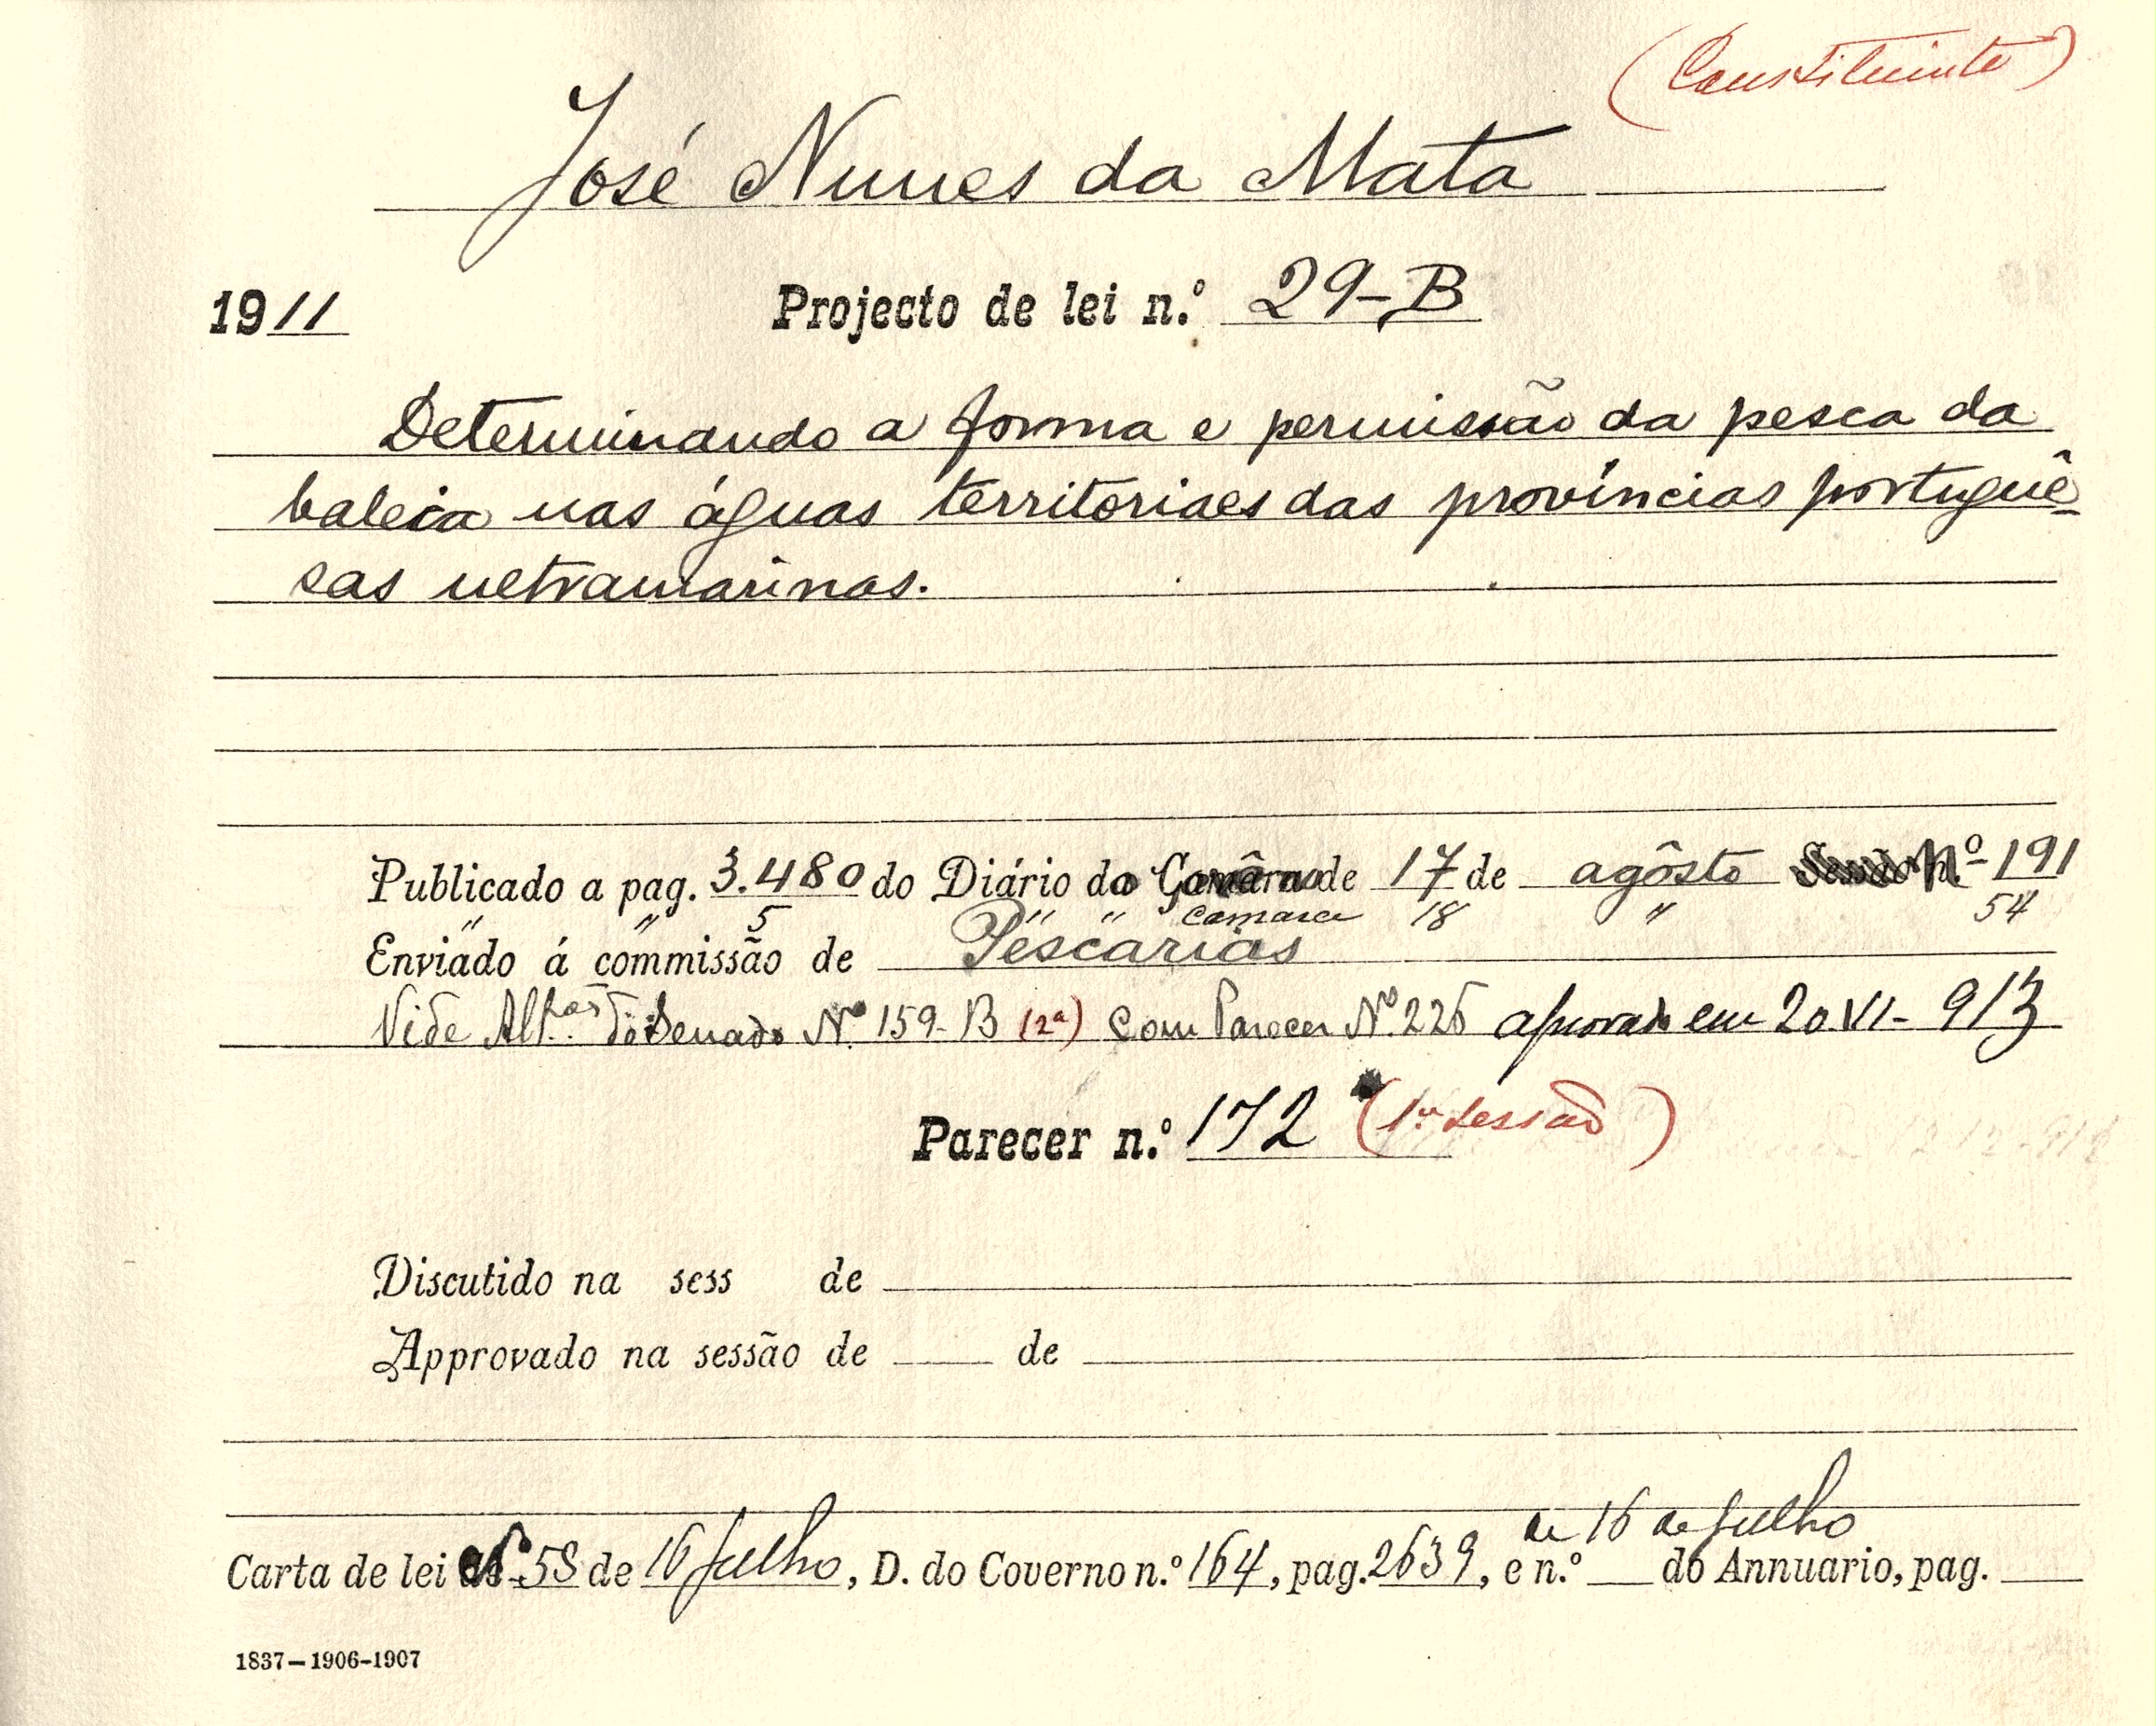 (Constituinte)
José Nunes da Mata
1911 Projecto de lei n.º 29-B
Determinando a forma e permissão da pesca da
baleia nas águas territoriaes das províncias portuguê-
sas ultramarinas.
Publicado a pag. 3.480 do Diário do de 17 de agôsto N.º 191
" " 5 " " Camara 18 " 54
Enviado á commissão de Pescarias
Vide Alt.ões do Senado Nº 159-B (2ª) com Parecer Nº 226 aprovado em 20-VI-913
Parecer n.º 172 (1ª sessão)
Discutido na sess de
Approvado na sessão de de
de 16 de Julho
Carta de lei 58 de 16 Julho, D. do Governo n.º 164, pag. 2639, e n.º do Annuario, pag.
1837—1906-1907